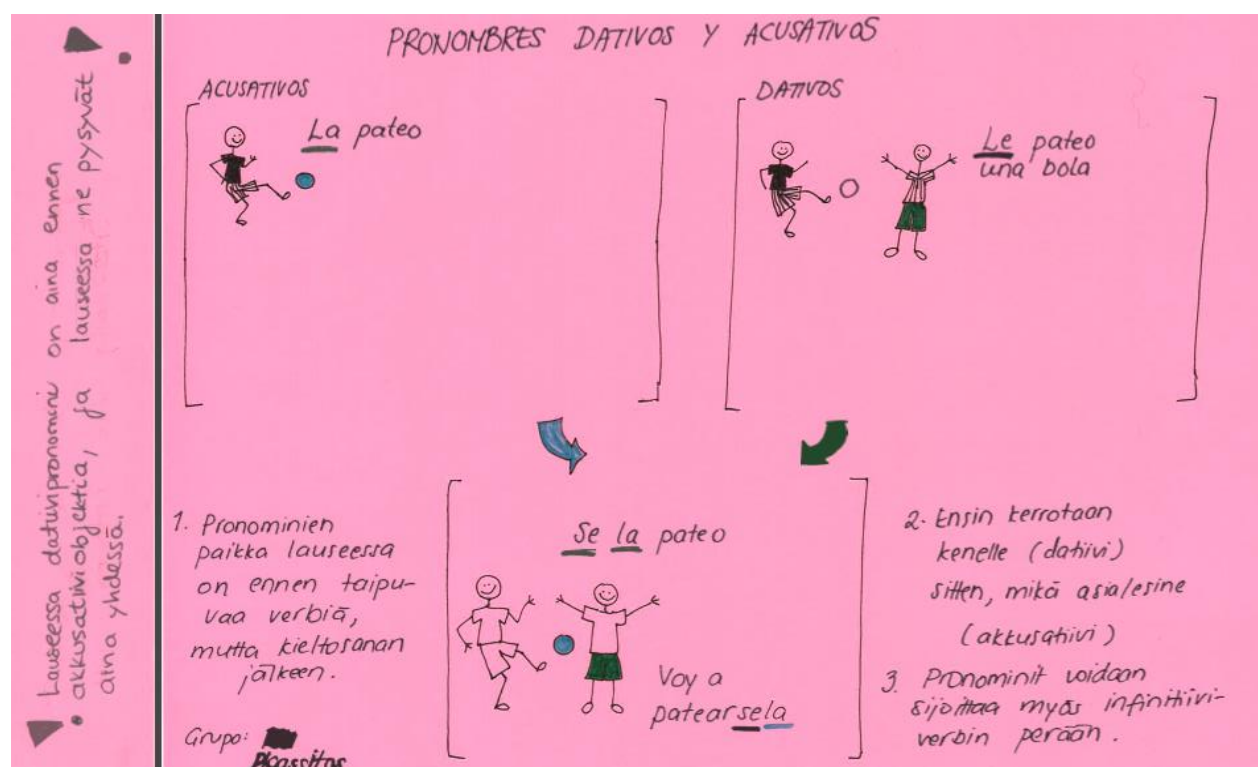 Lauseessa dativipronomini on aina ennen
akkusatiiviobjektia, ja lauseessa ne pysyvät
aina yhdessä.
PRONOMBRES DATIVOS Y ACUSATIVOS
ACUSATIVOS
La pateo
DATIVOS
Le pateo
una bola
1. Pronominien
paikka lauseessa
on ennen taipu-
vaa verbiä,
mutta kieltosanan
jälkeen.
Grupo:
Picassitos
Se la pateo
Voy a
patearsela
2. Ensin kerrotaan
kenelle (datiivi)
sitten, mikä asia/esine
(akkusatiivi)
3. Pronominit voidaan
sijoittaa myös infinitiivi-
verbin perään.